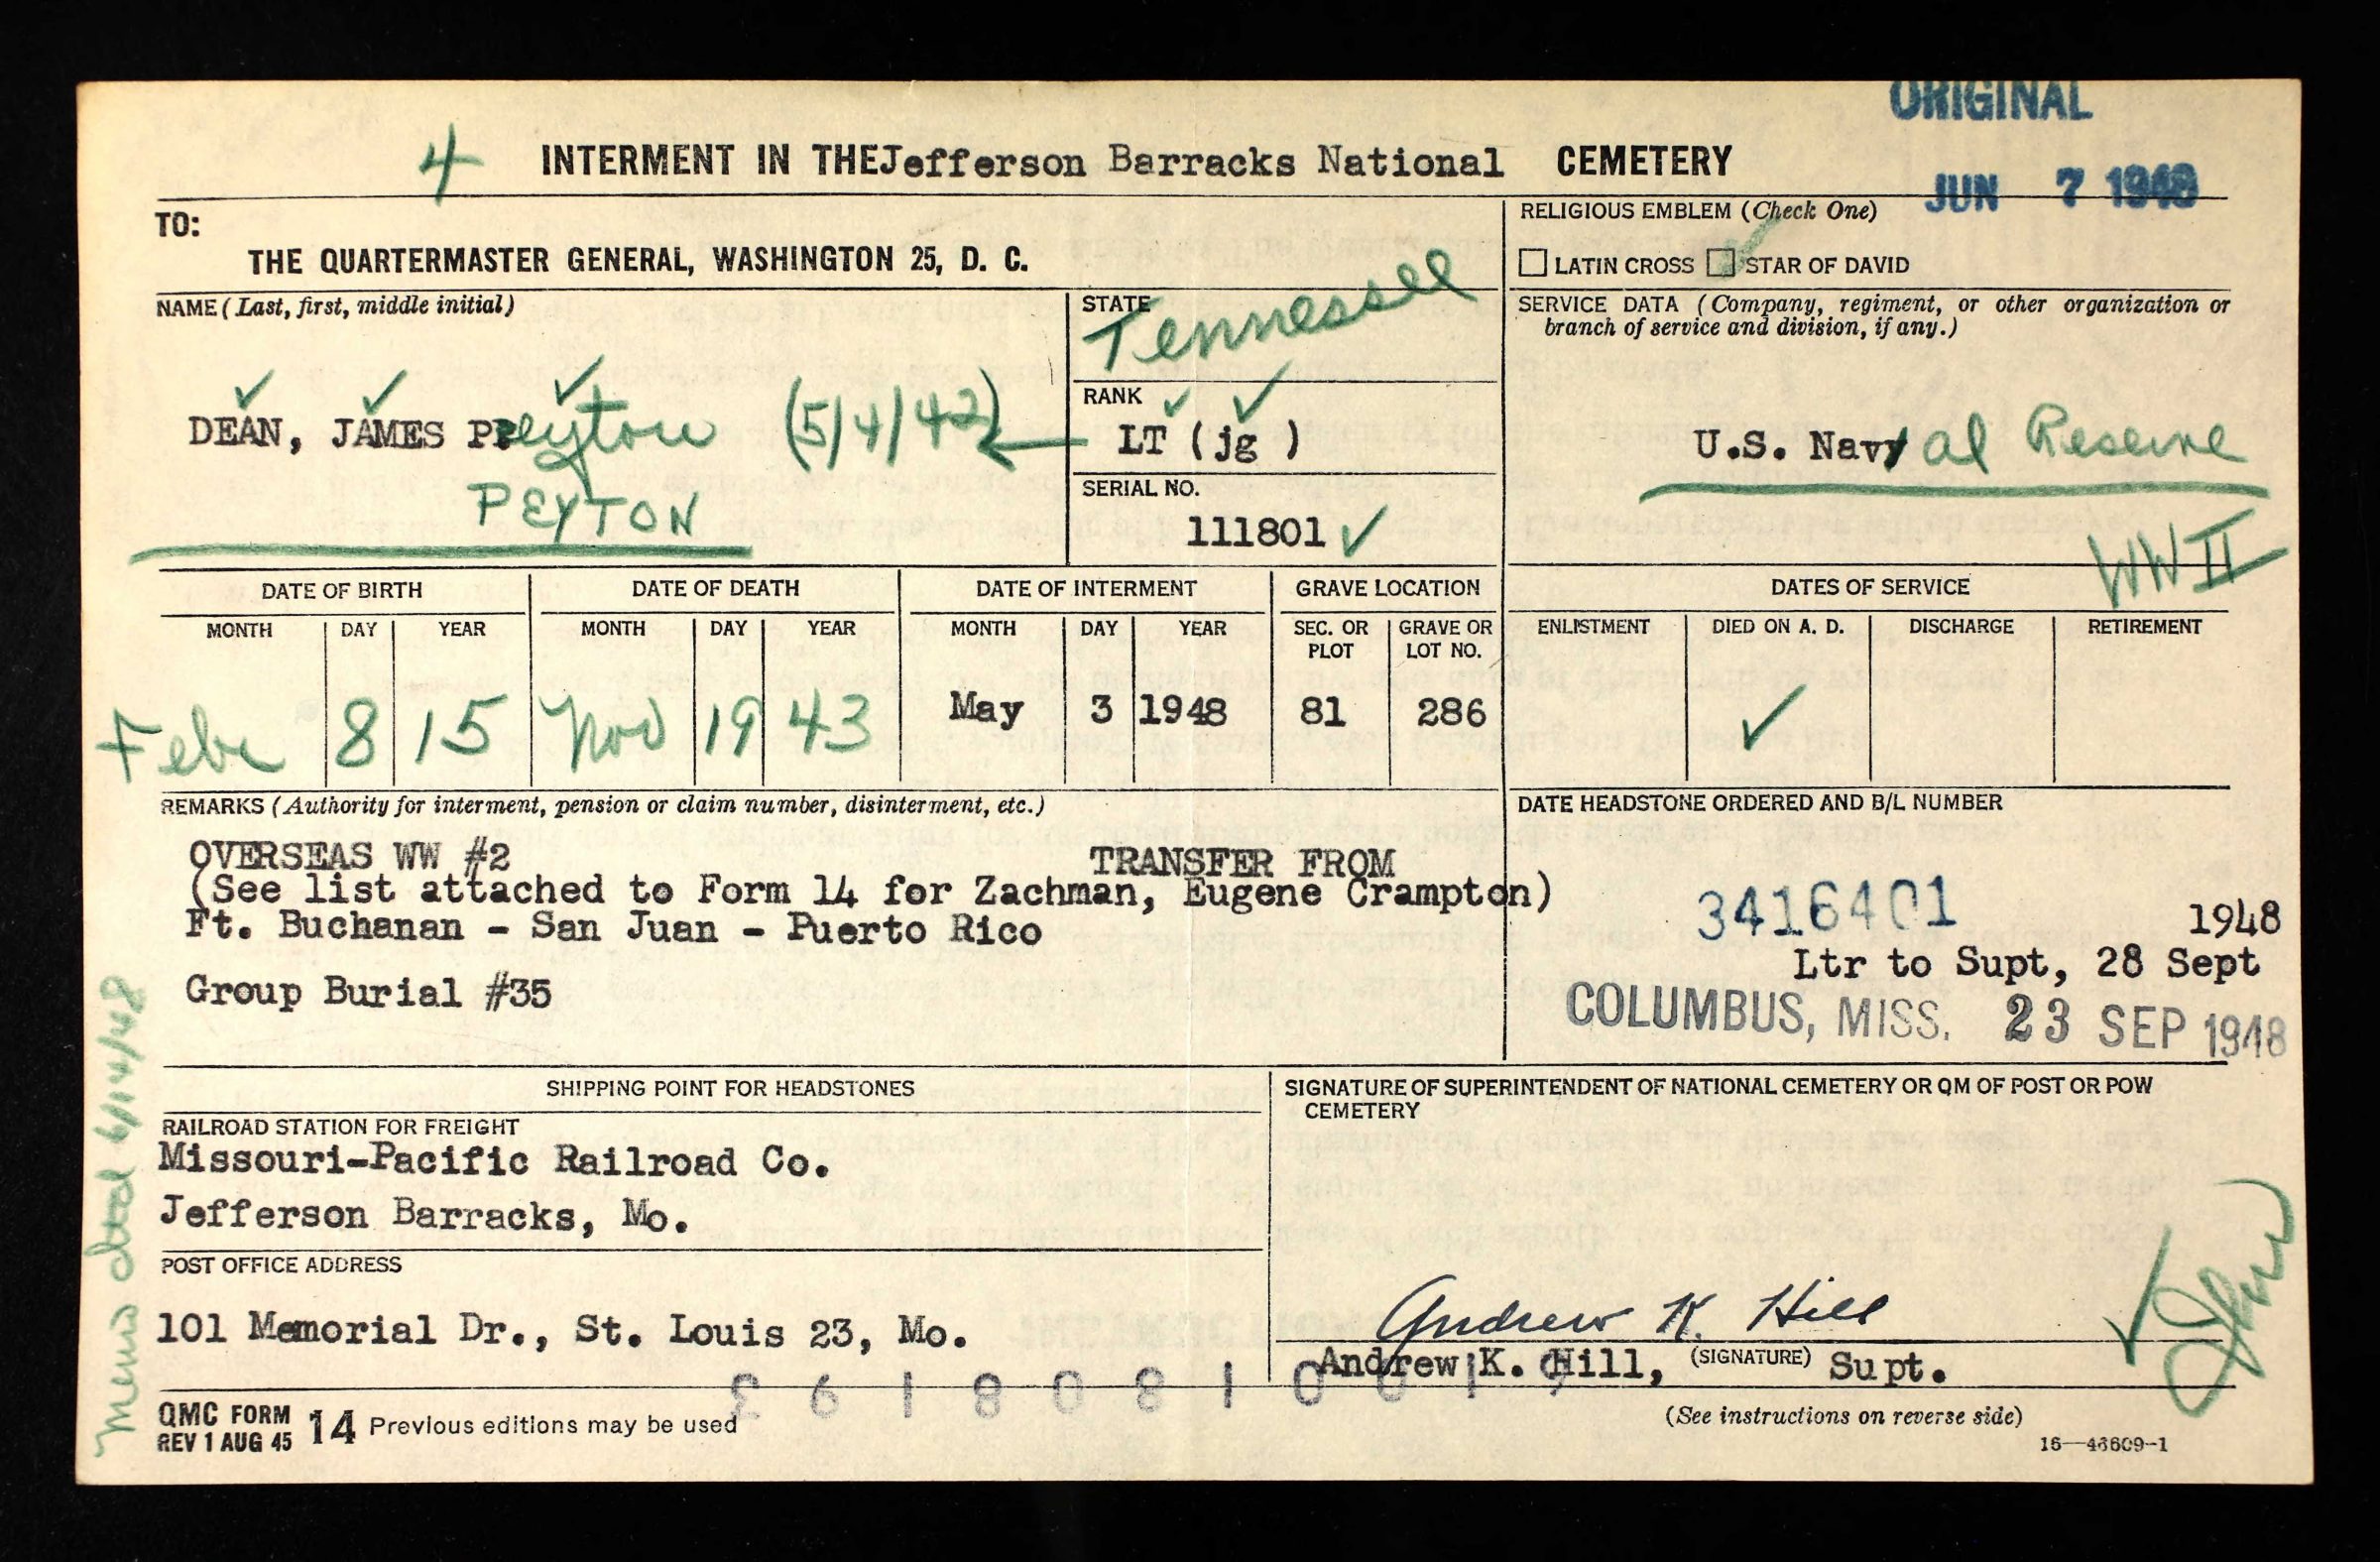 ORIGINAL
4 INTERMENT IN THE Jefferson Barracks National CEMETERY
JUN 7 1948
TO:
THE QUARTERMASTER GENERAL, WASHINGTON 25, D. C.
RELIGIOUS EMBLEM (Check One)
☐ LATIN CROSS ☐ STAR OF DAVID
NAME (Last, first, middle initial)
DEAN, JAMES P Peyton (5/4/42)
PEYTON
STATE
Tennessee
RANK
LT (jg )
SERIAL NO.
111801 ✓
SERVICE DATA (Company, regiment, or other organization or
branch of service and division, if any.)
U.S. Naval Reserve
WW II
DATE OF BIRTH DATE OF DEATH DATE OF INTERMENT GRAVE LOCATION DATES OF SERVICE
MONTH DAY YEAR MONTH DAY YEAR MONTH DAY YEAR SEC. OR PLOT GRAVE OR LOT NO. ENLISTMENT DIED ON A. D. DISCHARGE RETIREMENT
Feb 8 15 Nov 19 43 May 3 1948 81 286 ✓
REMARKS (Authority for interment, pension or claim number, disinterment, etc.)
OVERSEAS WW #2 TRANSFER FROM
(See list attached to Form 14 for Zachman, Eugene Crampton)
Ft. Buchanan - San Juan - Puerto Rico
Group Burial #35
DATE HEADSTONE ORDERED AND B/L NUMBER
3416401 1948
Ltr to Supt, 28 Sept
COLUMBUS, MISS. 23 SEP 1948
SHIPPING POINT FOR HEADSTONES
RAILROAD STATION FOR FREIGHT
Missouri-Pacific Railroad Co.
Jefferson Barracks, Mo.
POST OFFICE ADDRESS
101 Memorial Dr., St. Louis 23, Mo.
SIGNATURE OF SUPERINTENDENT OF NATIONAL CEMETERY OR QM OF POST OR POW
CEMETERY
Andrew K. Hill
Andrew K. Hill, (SIGNATURE) Supt.
QMC FORM 14 Previous editions may be used
REV 1 AUG 45
(See instructions on reverse side)
16—43609-1
dted 6/14/48